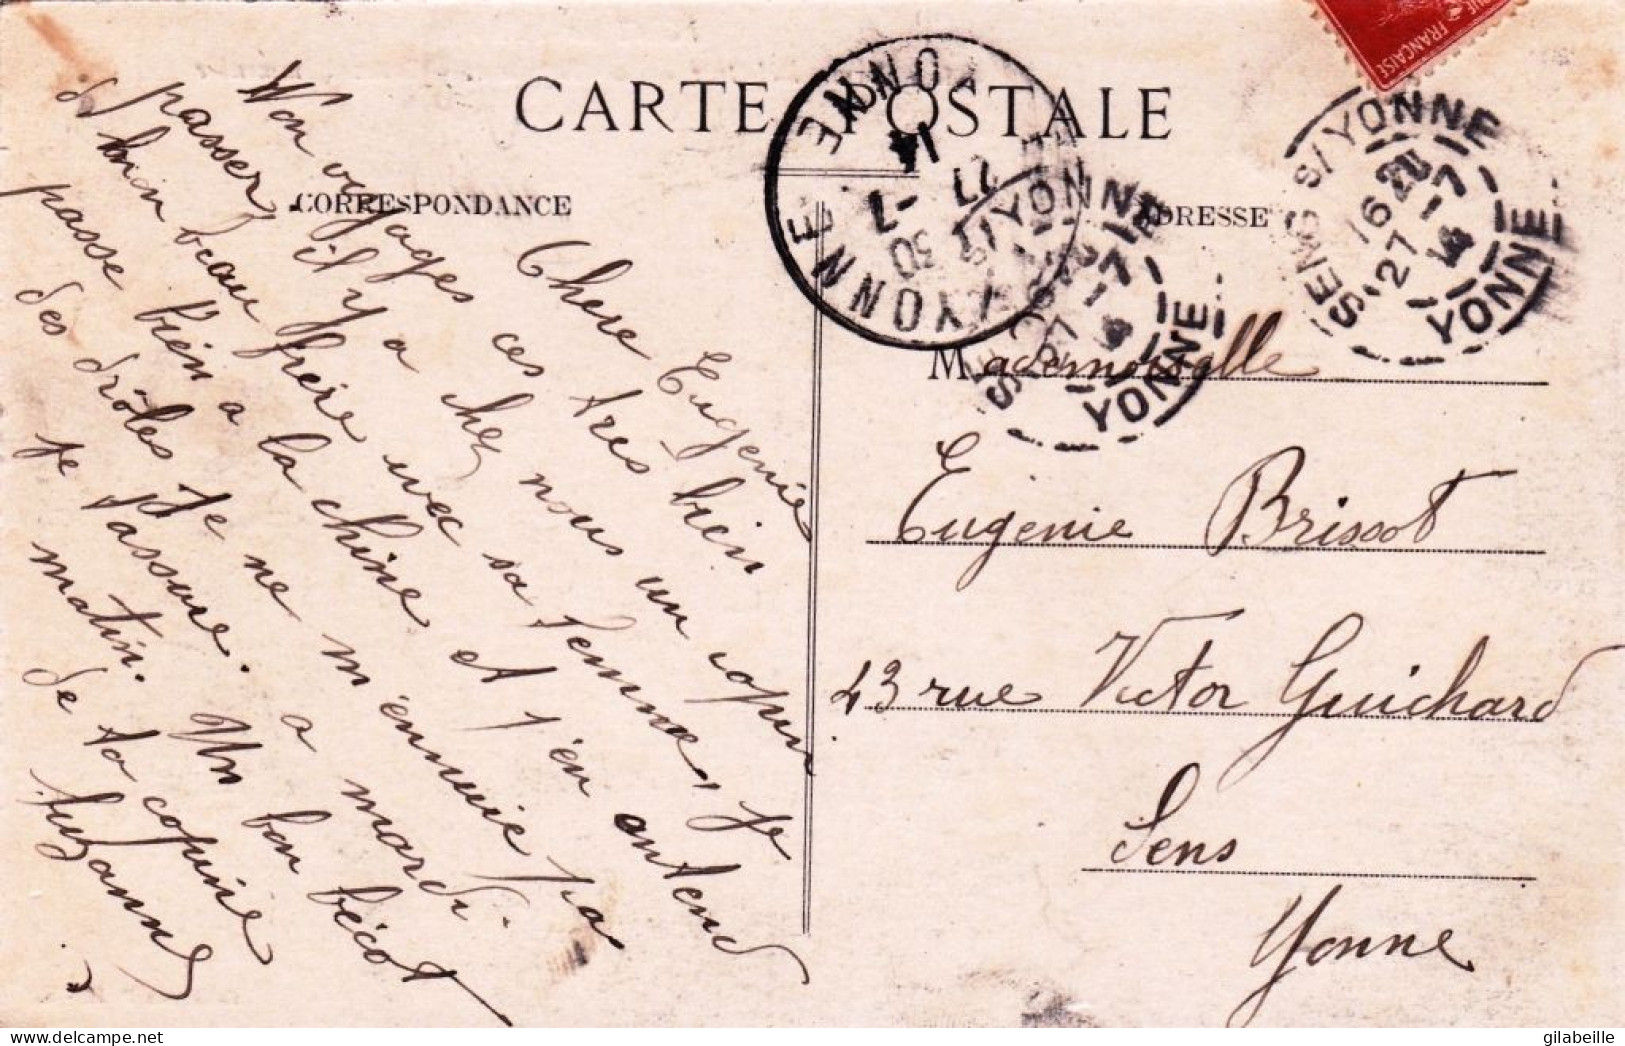 CARTE POSTALE
CORRESPONDANCE
ADRESSE
FRANÇAISE
YONNE
YONNE
27 -7
14
SENS S/YONNE
16 20
27 -7
14
YONNE
S/YONNE
YONNE
Chere Eugenie
Mon voyages ces tres bien
passer, il y a chez nous un copin
et bien beau frere avec sa femme, je
passe bien a la chine et j'en entend
des drôles je ne m'ennuie pas
je t'assure. a mardi
matin. Un bon bécot
de ta copine
Suzanne
Mademoiselle
Eugenie Brissot
43 rue Victor Guichard
Sens
Yonne
gilabeille